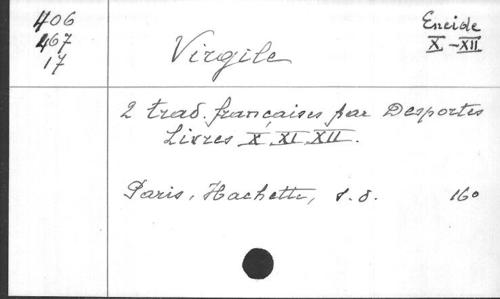 406
467
17
Virgile
Eneide
X-XII
2 trad. françaises par Desportes
Livres X, XI, XII.
Paris, Hachette, s. d. 16o